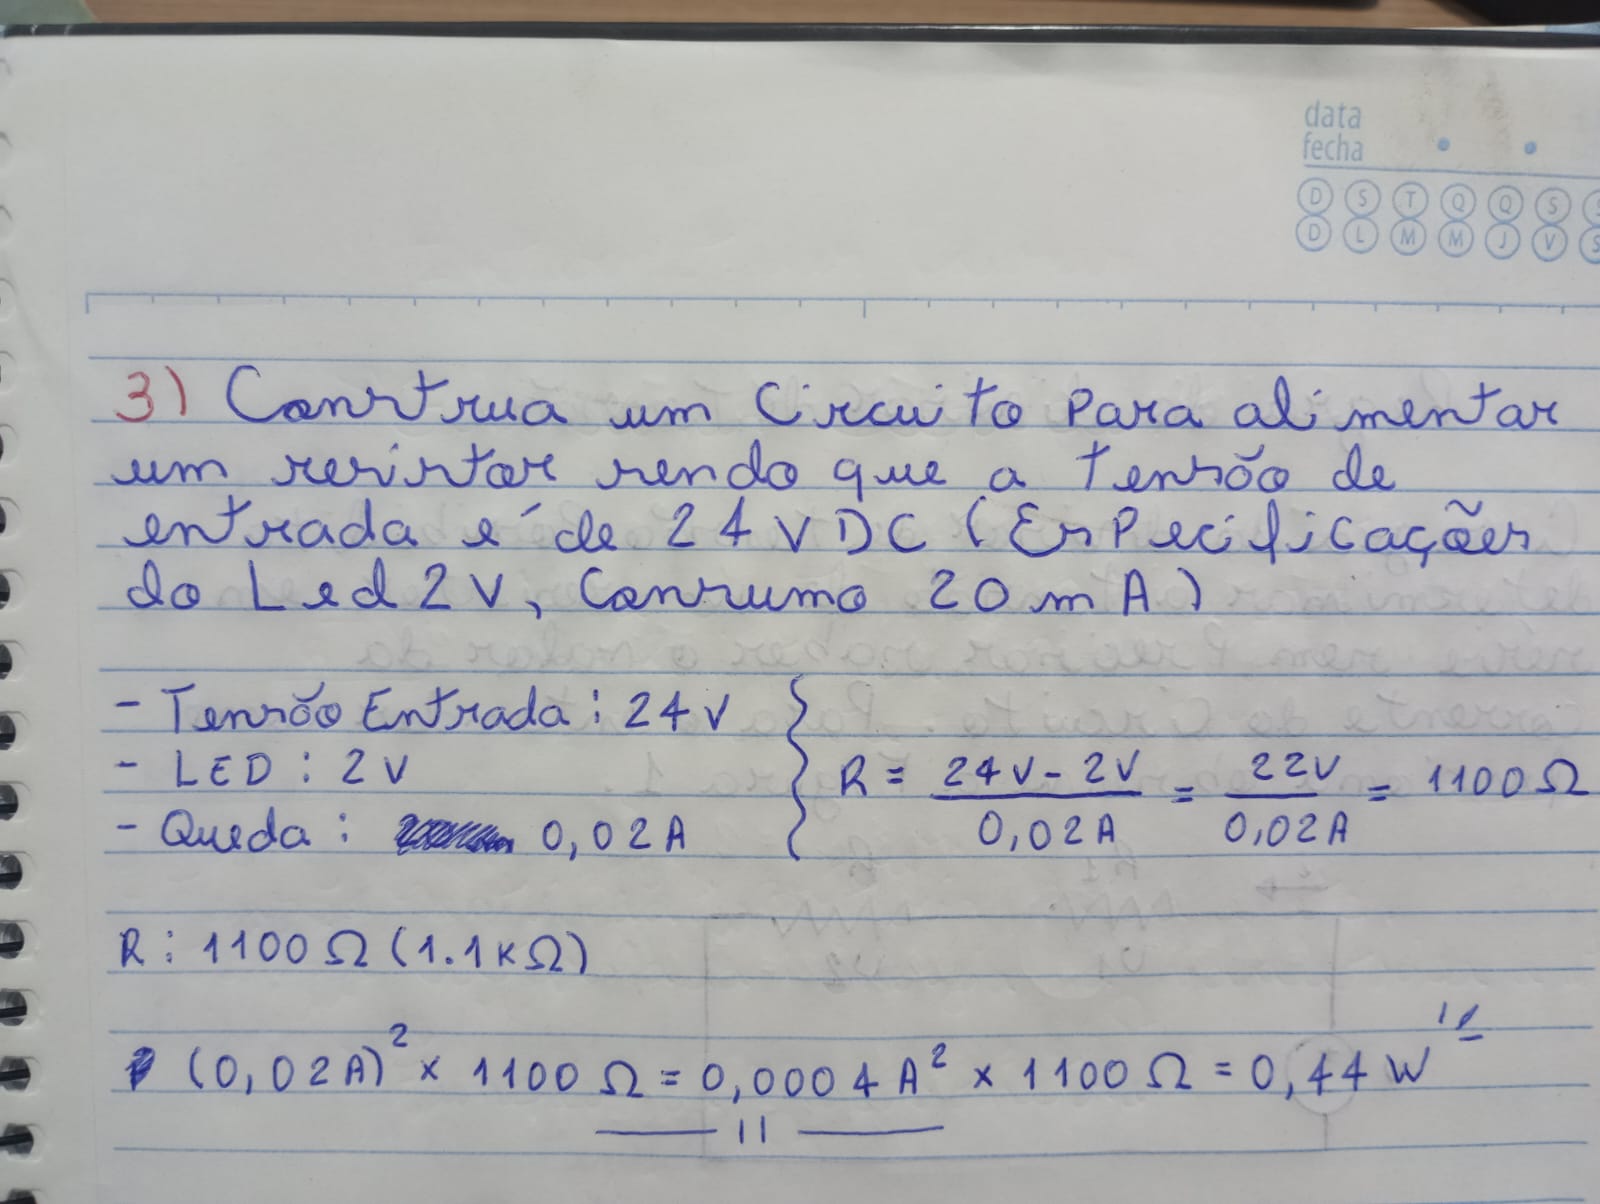 data
fecha
D S T Q Q S S
D L M M J V S
3) Construa um Circuito Para alimentar
um resistor sendo que a Tensão de
entrada é de 24 V DC (EsPecificações
do Led 2 V, Consumo 20 mA)
- Tensão Entrada : 24 V
- LED : 2 V
- Queda : 0,02 A
R = 24V - 2V / 0,02A = 22V / 0,02A = 1100 Ω
R : 1100 Ω (1.1KΩ)
(0,02A)² x 1100 Ω = 0,0004 A² x 1100 Ω = 0,44 W